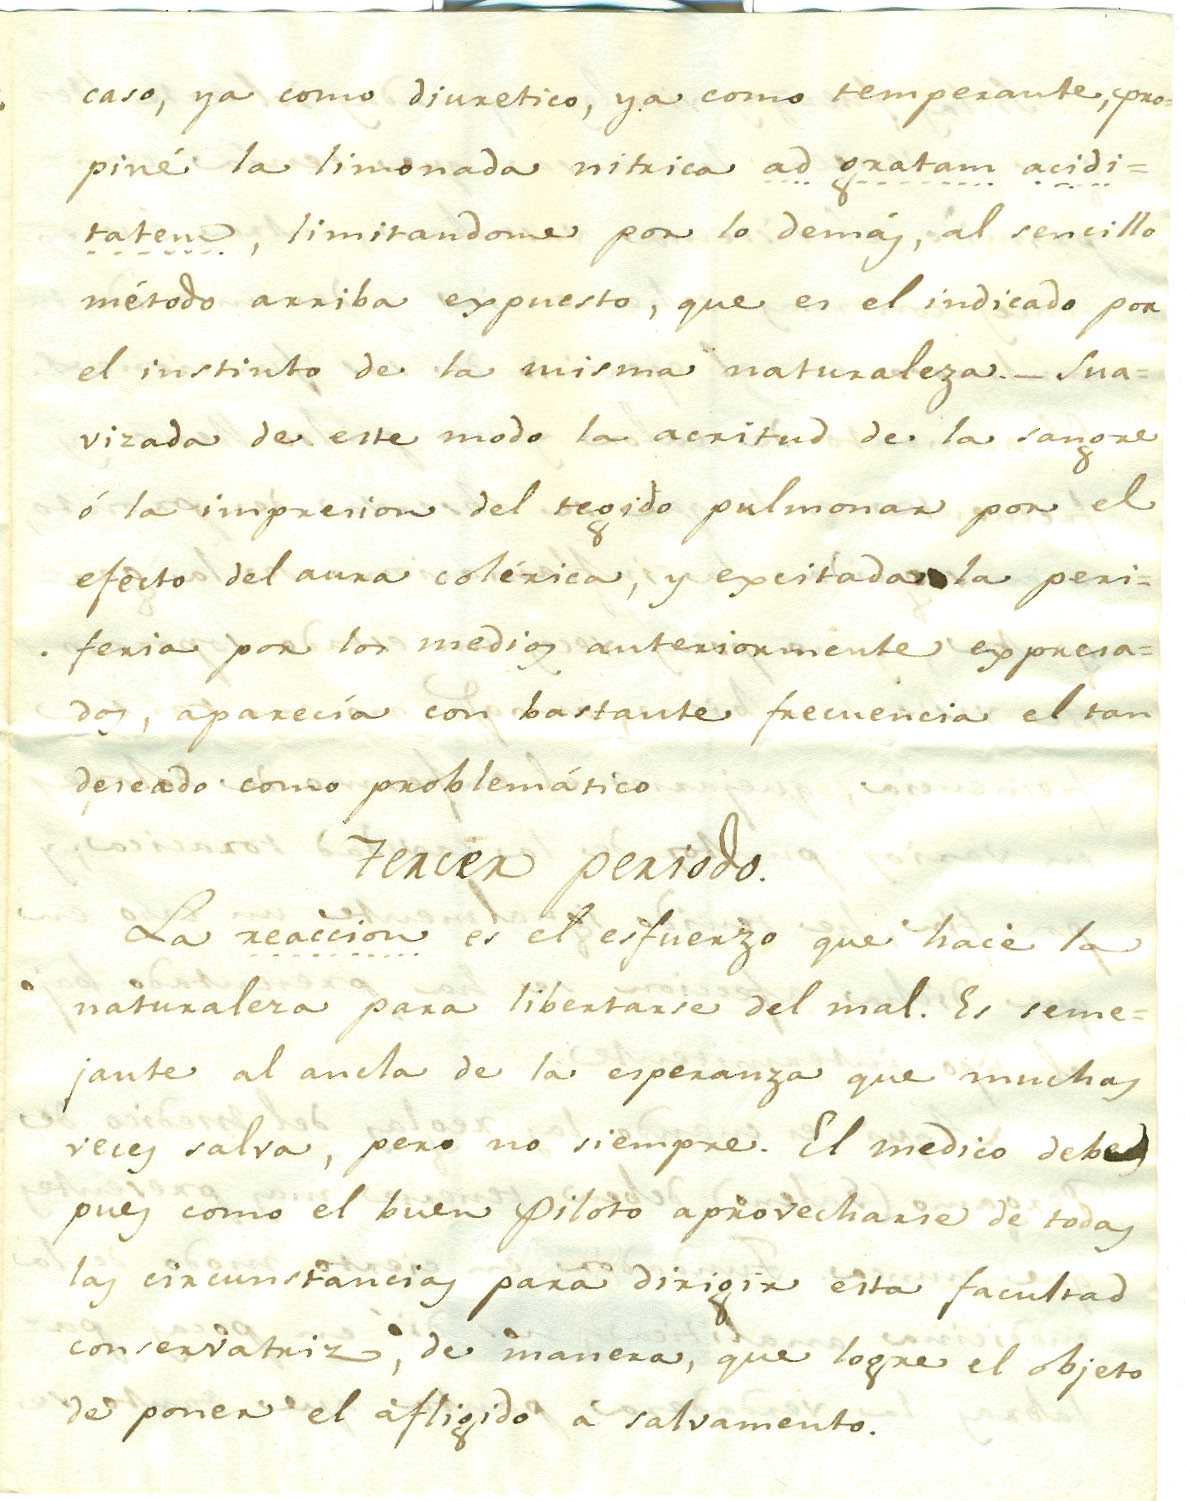 caso, ya como diuretico, ya como temperante, pro=
piné la limonada nitrica ad gratam acidi=
tatem, limitandome por lo demás, al sencillo
método arriba expuesto, que es el indicado por
el instinto de la misma naturaleza. — Sua=
vizada de este modo la acritud de la sangre
ó la impresion del tegido pulmonar por el
efecto del aura colérica, y excitada la peri=
feria por los medios anteriormente expresa=
dos, aparecía con bastante frecuencia el tan
deseado como problemático
Tercer periodo.
La reaccion es el esfuerzo que hace la
naturaleza para libertarse del mal. Es seme=
jante al ancla de la esperanza que muchas
veces salva, pero no siempre. El medico debe
pues como el buen Piloto aprovecharse de todas
las circunstancias para dirigir esta facultad
conservatriz, de manera, que logre el objeto
de poner el afligido á salvamento.